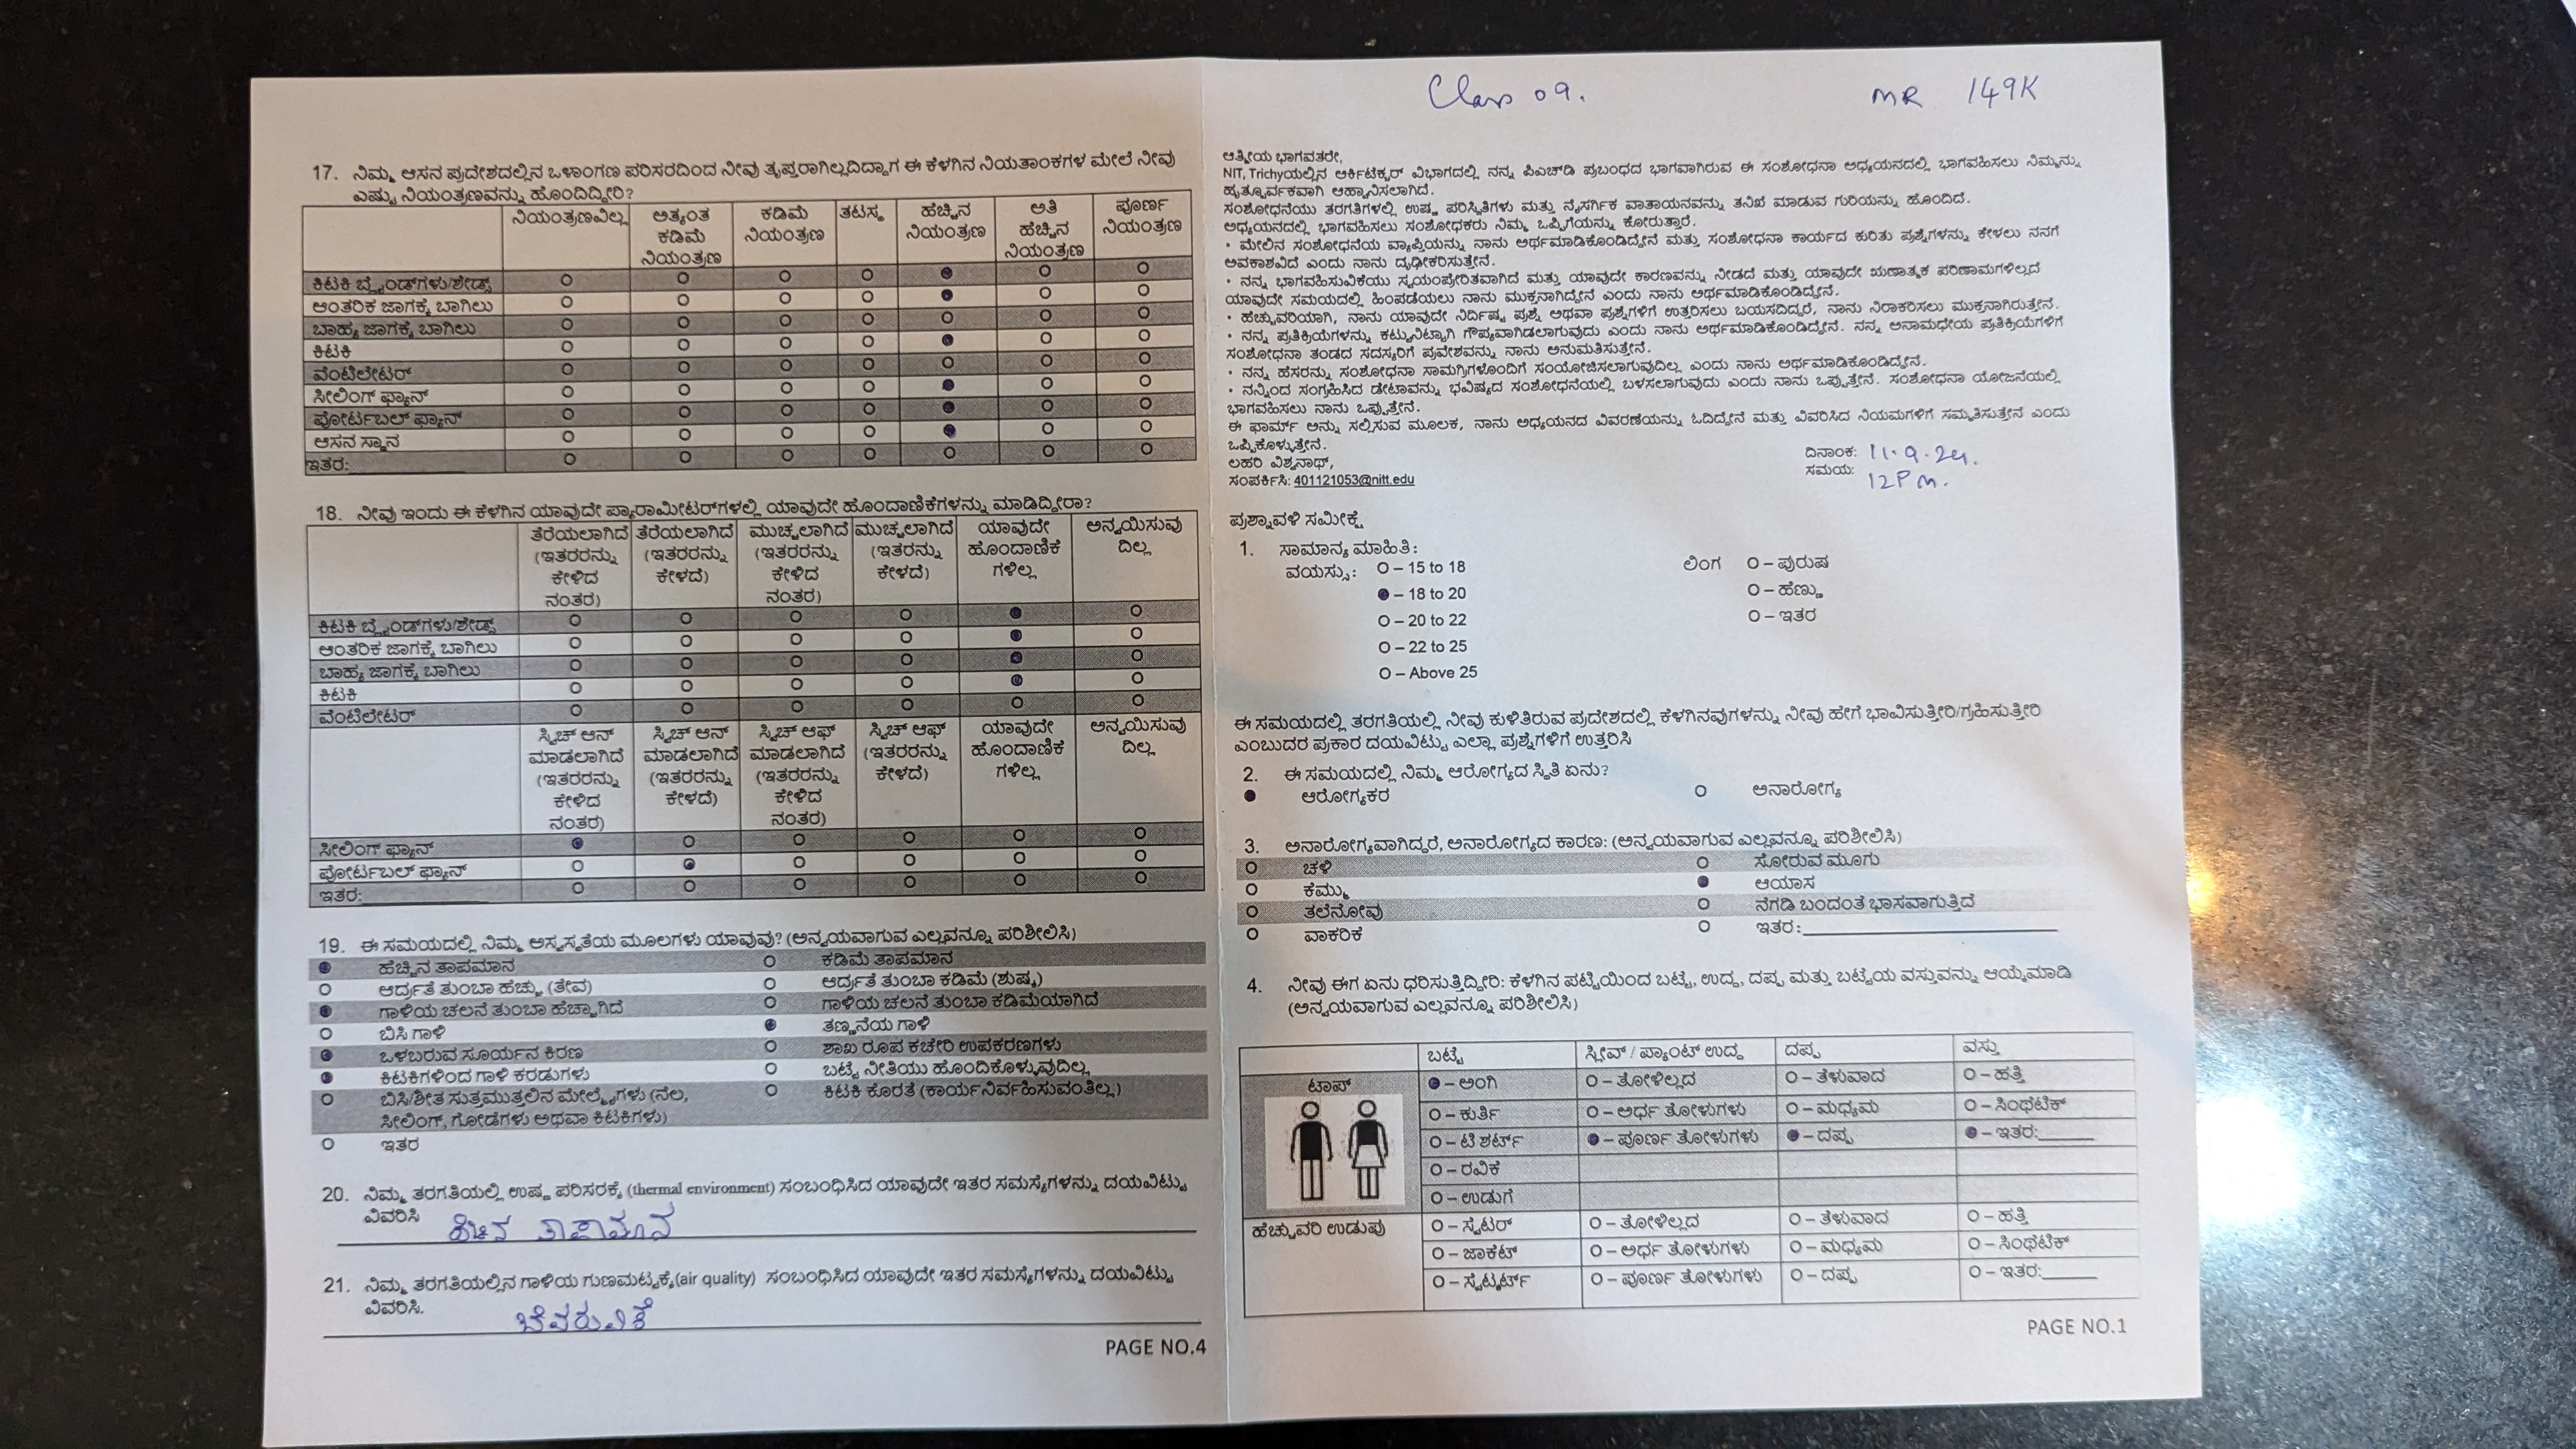 Class 09.
MR 149K
17. ನಿಮ್ಮ ಆಸನ ಪ್ರದೇಶದಲ್ಲಿನ ಒಳಾಂಗಣ ಪರಿಸರದಿಂದ ನೀವು ತೃಪ್ತರಾಗಿಲ್ಲದಿದ್ದಾಗ ಈ ಕೆಳಗಿನ ನಿಯತಾಂಕಗಳ ಮೇಲೆ ನೀವು
ಎಷ್ಟು ನಿಯಂತ್ರಣವನ್ನು ಹೊಂದಿದ್ದೀರಿ?
ನಿಯಂತ್ರಣವಿಲ್ಲ ಅತ್ಯಂತ ಕಡಿಮೆ ನಿಯಂತ್ರಣ ಕಡಿಮೆ ನಿಯಂತ್ರಣ ತಟಸ್ಥ ಹೆಚ್ಚಿನ ನಿಯಂತ್ರಣ ಅತಿ ಹೆಚ್ಚಿನ ನಿಯಂತ್ರಣ ಪೂರ್ಣ ನಿಯಂತ್ರಣ
ಕಿಟಕಿ ಬ್ಲೈಂಡ್‌ಗಳು/ಶೇಡ್ಸ್
ಆಂತರಿಕ ಜಾಗಕ್ಕೆ ಬಾಗಿಲು
ಬಾಹ್ಯ ಜಾಗಕ್ಕೆ ಬಾಗಿಲು
ಕಿಟಕಿ
ವೆಂಟಿಲೇಟರ್
ಸೀಲಿಂಗ್ ಫ್ಯಾನ್
ಪೋರ್ಟಬಲ್ ಫ್ಯಾನ್
ಆಸನ ಸ್ಥಾನ
ಇತರ:
18. ನೀವು ಇಂದು ಈ ಕೆಳಗಿನ ಯಾವುದೇ ಪ್ಯಾರಾಮೀಟರ್‌ಗಳಲ್ಲಿ ಯಾವುದೇ ಹೊಂದಾಣಿಕೆಗಳನ್ನು ಮಾಡಿದ್ದೀರಾ?
ತೆರೆಯಲಾಗಿದೆ (ಇತರರನ್ನು ಕೇಳಿದ ನಂತರ) ತೆರೆಯಲಾಗಿದೆ (ಇತರರನ್ನು ಕೇಳದೆ) ಮುಚ್ಚಲಾಗಿದೆ (ಇತರರನ್ನು ಕೇಳಿದ ನಂತರ) ಮುಚ್ಚಲಾಗಿದೆ (ಇತರರನ್ನು ಕೇಳದೆ) ಯಾವುದೇ ಹೊಂದಾಣಿಕೆ ಗಳಿಲ್ಲ ಅನ್ವಯಿಸುವು ದಿಲ್ಲ
ಕಿಟಕಿ ಬ್ಲೈಂಡ್‌ಗಳು/ಶೇಡ್ಸ್
ಆಂತರಿಕ ಜಾಗಕ್ಕೆ ಬಾಗಿಲು
ಬಾಹ್ಯ ಜಾಗಕ್ಕೆ ಬಾಗಿಲು
ಕಿಟಕಿ
ವೆಂಟಿಲೇಟರ್
ಸ್ವಿಚ್ ಆನ್ ಮಾಡಲಾಗಿದೆ (ಇತರರನ್ನು ಕೇಳಿದ ನಂತರ) ಸ್ವಿಚ್ ಆನ್ ಮಾಡಲಾಗಿದೆ (ಇತರರನ್ನು ಕೇಳದೆ) ಸ್ವಿಚ್ ಆಫ್ ಮಾಡಲಾಗಿದೆ (ಇತರರನ್ನು ಕೇಳಿದ ನಂತರ) ಸ್ವಿಚ್ ಆಫ್ (ಇತರರನ್ನು ಕೇಳದೆ) ಯಾವುದೇ ಹೊಂದಾಣಿಕೆ ಗಳಿಲ್ಲ ಅನ್ವಯಿಸುವು ದಿಲ್ಲ
ಸೀಲಿಂಗ್ ಫ್ಯಾನ್
ಪೋರ್ಟಬಲ್ ಫ್ಯಾನ್
ಇತರ:
19. ಈ ಸಮಯದಲ್ಲಿ ನಿಮ್ಮ ಅಸ್ವಸ್ಥತೆಯ ಮೂಲಗಳು ಯಾವುವು? (ಅನ್ವಯವಾಗುವ ಎಲ್ಲವನ್ನೂ ಪರಿಶೀಲಿಸಿ)
ಹೆಚ್ಚಿನ ತಾಪಮಾನ ಕಡಿಮೆ ತಾಪಮಾನ
ಆರ್ದ್ರತೆ ತುಂಬಾ ಹೆಚ್ಚು (ತೇವ) ಆರ್ದ್ರತೆ ತುಂಬಾ ಕಡಿಮೆ (ಶುಷ್ಕ)
ಗಾಳಿಯ ಚಲನೆ ತುಂಬಾ ಹೆಚ್ಚಾಗಿದೆ ಗಾಳಿಯ ಚಲನೆ ತುಂಬಾ ಕಡಿಮೆಯಾಗಿದೆ
ಬಿಸಿ ಗಾಳಿ ತಣ್ಣನೆಯ ಗಾಳಿ
ಒಳಬರುವ ಸೂರ್ಯನ ಕಿರಣ ಶಾಖ ರೂಪ ಕಚೇರಿ ಉಪಕರಣಗಳು
ಕಿಟಕಿಗಳಿಂದ ಗಾಳಿ ಕರಡುಗಳು ಬಟ್ಟೆ ನೀತಿಯು ಹೊಂದಿಕೊಳ್ಳುವುದಿಲ್ಲ
ಬಿಸಿ/ಶೀತ ಸುತ್ತಮುತ್ತಲಿನ ಮೇಲ್ಮೈಗಳು (ನೆಲ, ಕಿಟಕಿ ಕೊರತೆ (ಕಾರ್ಯನಿರ್ವಹಿಸುವಂತಿಲ್ಲ)
ಸೀಲಿಂಗ್, ಗೋಡೆಗಳು ಅಥವಾ ಕಿಟಕಿಗಳು)
ಇತರ
20. ನಿಮ್ಮ ತರಗತಿಯಲ್ಲಿ ಉಷ್ಣ ಪರಿಸರಕ್ಕೆ (thermal environment) ಸಂಬಂಧಿಸಿದ ಯಾವುದೇ ಇತರ ಸಮಸ್ಯೆಗಳನ್ನು ದಯವಿಟ್ಟು
ವಿವರಿಸಿ ತಾಪಾಮಾನ
21. ನಿಮ್ಮ ತರಗತಿಯಲ್ಲಿನ ಗಾಳಿಯ ಗುಣಮಟ್ಟಕ್ಕೆ(air quality) ಸಂಬಂಧಿಸಿದ ಯಾವುದೇ ಇತರ ಸಮಸ್ಯೆಗಳನ್ನು ದಯವಿಟ್ಟು
ವಿವರಿಸಿ. ಬೆವರುವಿಕೆ
PAGE NO.4
ಆತ್ಮೀಯ ಭಾಗವತರೇ,
NIT, Trichyಯಲ್ಲಿನ ಆರ್ಕಿಟೆಕ್ಚರ್ ವಿಭಾಗದಲ್ಲಿ ನನ್ನ ಪಿಎಚ್‌ಡಿ ಪ್ರಬಂಧದ ಭಾಗವಾಗಿರುವ ಈ ಸಂಶೋಧನಾ ಅಧ್ಯಯನದಲ್ಲಿ ಭಾಗವಹಿಸಲು ನಿಮ್ಮನ್ನು
ಹೃತ್ಪೂರ್ವಕವಾಗಿ ಆಹ್ವಾನಿಸಲಾಗಿದೆ.
ಸಂಶೋಧನೆಯು ತರಗತಿಗಳಲ್ಲಿ ಉಷ್ಣ ಪರಿಸ್ಥಿತಿಗಳು ಮತ್ತು ನೈಸರ್ಗಿಕ ವಾತಾಯನವನ್ನು ತನಿಖೆ ಮಾಡುವ ಗುರಿಯನ್ನು ಹೊಂದಿದೆ.
ಅಧ್ಯಯನದಲ್ಲಿ ಭಾಗವಹಿಸಲು ಸಂಶೋಧಕರು ನಿಮ್ಮ ಒಪ್ಪಿಗೆಯನ್ನು ಕೋರುತ್ತಾರೆ.
• ಮೇಲಿನ ಸಂಶೋಧನೆಯ ವ್ಯಾಪ್ತಿಯನ್ನು ನಾನು ಅರ್ಥಮಾಡಿಕೊಂಡಿದ್ದೇನೆ ಮತ್ತು ಸಂಶೋಧನಾ ಕಾರ್ಯದ ಕುರಿತು ಪ್ರಶ್ನೆಗಳನ್ನು ಕೇಳಲು ನನಗೆ
ಅವಕಾಶವಿದೆ ಎಂದು ನಾನು ದೃಢೀಕರಿಸುತ್ತೇನೆ.
• ನನ್ನ ಭಾಗವಹಿಸುವಿಕೆಯು ಸ್ವಯಂಪ್ರೇರಿತವಾಗಿದೆ ಮತ್ತು ಯಾವುದೇ ಕಾರಣವನ್ನು ನೀಡದೆ ಮತ್ತು ಯಾವುದೇ ಋಣಾತ್ಮಕ ಪರಿಣಾಮಗಳಿಲ್ಲದೆ
ಯಾವುದೇ ಸಮಯದಲ್ಲಿ ಹಿಂಪಡೆಯಲು ನಾನು ಮುಕ್ತನಾಗಿದ್ದೇನೆ ಎಂದು ನಾನು ಅರ್ಥಮಾಡಿಕೊಂಡಿದ್ದೇನೆ.
• ಹೆಚ್ಚುವರಿಯಾಗಿ, ನಾನು ಯಾವುದೇ ನಿರ್ದಿಷ್ಟ ಪ್ರಶ್ನೆ ಅಥವಾ ಪ್ರಶ್ನೆಗಳಿಗೆ ಉತ್ತರಿಸಲು ಬಯಸದಿದ್ದರೆ, ನಾನು ನಿರಾಕರಿಸಲು ಮುಕ್ತನಾಗಿರುತ್ತೇನೆ.
• ನನ್ನ ಪ್ರತಿಕ್ರಿಯೆಗಳನ್ನು ಕಟ್ಟುನಿಟ್ಟಾಗಿ ಗೌಪ್ಯವಾಗಿಡಲಾಗುವುದು ಎಂದು ನಾನು ಅರ್ಥಮಾಡಿಕೊಂಡಿದ್ದೇನೆ. ನನ್ನ ಅನಾಮಧೇಯ ಪ್ರತಿಕ್ರಿಯೆಗಳಿಗೆ
ಸಂಶೋಧನಾ ತಂಡದ ಸದಸ್ಯರಿಗೆ ಪ್ರವೇಶವನ್ನು ನಾನು ಅನುಮತಿಸುತ್ತೇನೆ.
• ನನ್ನ ಹೆಸರನ್ನು ಸಂಶೋಧನಾ ಸಾಮಗ್ರಿಗಳೊಂದಿಗೆ ಸಂಯೋಜಿಸಲಾಗುವುದಿಲ್ಲ ಎಂದು ನಾನು ಅರ್ಥಮಾಡಿಕೊಂಡಿದ್ದೇನೆ.
• ನನ್ನಿಂದ ಸಂಗ್ರಹಿಸಿದ ಡೇಟಾವನ್ನು ಭವಿಷ್ಯದ ಸಂಶೋಧನೆಯಲ್ಲಿ ಬಳಸಲಾಗುವುದು ಎಂದು ನಾನು ಒಪ್ಪುತ್ತೇನೆ. ಸಂಶೋಧನಾ ಯೋಜನೆಯಲ್ಲಿ
ಭಾಗವಹಿಸಲು ನಾನು ಒಪ್ಪುತ್ತೇನೆ.
ಈ ಫಾರ್ಮ್ ಅನ್ನು ಸಲ್ಲಿಸುವ ಮೂಲಕ, ನಾನು ಅಧ್ಯಯನದ ವಿವರಣೆಯನ್ನು ಓದಿದ್ದೇನೆ ಮತ್ತು ವಿವರಿಸಿದ ನಿಯಮಗಳಿಗೆ ಸಮ್ಮತಿಸುತ್ತೇನೆ ಎಂದು
ಒಪ್ಪಿಕೊಳ್ಳುತ್ತೇನೆ.
ಲಹರಿ ವಿಶ್ವನಾಥ್, ದಿನಾಂಕ: 11.9.24.
ಸಂಪರ್ಕಿಸಿ: 401121053@nitt.edu ಸಮಯ: 12PM.
ಪ್ರಶ್ನಾವಳಿ ಸಮೀಕ್ಷೆ
1. ಸಾಮಾನ್ಯ ಮಾಹಿತಿ:
ವಯಸ್ಸು: – 15 to 18 ಲಿಂಗ – ಪುರುಷ
– 18 to 20 – ಹೆಣ್ಣು
– 20 to 22 – ಇತರ
– 22 to 25
– Above 25
ಈ ಸಮಯದಲ್ಲಿ ತರಗತಿಯಲ್ಲಿ ನೀವು ಕುಳಿತಿರುವ ಪ್ರದೇಶದಲ್ಲಿ ಕೆಳಗಿನವುಗಳನ್ನು ನೀವು ಹೇಗೆ ಭಾವಿಸುತ್ತೀರಿ/ಗ್ರಹಿಸುತ್ತೀರಿ
ಎಂಬುದರ ಪ್ರಕಾರ ದಯವಿಟ್ಟು ಎಲ್ಲಾ ಪ್ರಶ್ನೆಗಳಿಗೆ ಉತ್ತರಿಸಿ
2. ಈ ಸಮಯದಲ್ಲಿ ನಿಮ್ಮ ಆರೋಗ್ಯದ ಸ್ಥಿತಿ ಏನು?
ಆರೋಗ್ಯಕರ ಅನಾರೋಗ್ಯ
3. ಅನಾರೋಗ್ಯವಾಗಿದ್ದರೆ, ಅನಾರೋಗ್ಯದ ಕಾರಣ: (ಅನ್ವಯವಾಗುವ ಎಲ್ಲವನ್ನೂ ಪರಿಶೀಲಿಸಿ)
ಚಳಿ ಸೋರುವ ಮೂಗು
ಕೆಮ್ಮು ಆಯಾಸ
ತಲೆನೋವು ನೆಗಡಿ ಬಂದಂತೆ ಭಾಸವಾಗುತ್ತಿದೆ
ವಾಕರಿಕೆ ಇತರ:
4. ನೀವು ಈಗ ಏನು ಧರಿಸುತ್ತಿದ್ದೀರಿ: ಕೆಳಗಿನ ಪಟ್ಟಿಯಿಂದ ಬಟ್ಟೆ, ಉದ್ದ, ದಪ್ಪ ಮತ್ತು ಬಟ್ಟೆಯ ವಸ್ತುವನ್ನು ಆಯ್ಕೆಮಾಡಿ
(ಅನ್ವಯವಾಗುವ ಎಲ್ಲವನ್ನೂ ಪರಿಶೀಲಿಸಿ)
ಬಟ್ಟೆ ಸ್ಲೀವ್ / ಪ್ಯಾಂಟ್ ಉದ್ದ ದಪ್ಪ ವಸ್ತು
ಟಾಪ್ – ಅಂಗಿ – ತೋಳಿಲ್ಲದ – ತೆಳುವಾದ – ಹತ್ತಿ
– ಕುರ್ತಿ – ಅರ್ಧ ತೋಳುಗಳು – ಮಧ್ಯಮ – ಸಿಂಥೆಟಿಕ್
– ಟಿ ಶರ್ಟ್ – ಪೂರ್ಣ ತೋಳುಗಳು – ದಪ್ಪ – ಇತರ:
– ರವಿಕೆ
– ಉಡುಗೆ
ಹೆಚ್ಚುವರಿ ಉಡುಪು – ಸ್ವೆಟರ್ – ತೋಳಿಲ್ಲದ – ತೆಳುವಾದ – ಹತ್ತಿ
– ಜಾಕೆಟ್ – ಅರ್ಧ ತೋಳುಗಳು – ಮಧ್ಯಮ – ಸಿಂಥೆಟಿಕ್
– ಸ್ವೆಟ್ಶರ್ಟ್ – ಪೂರ್ಣ ತೋಳುಗಳು – ದಪ್ಪ – ಇತರ:
PAGE NO.1